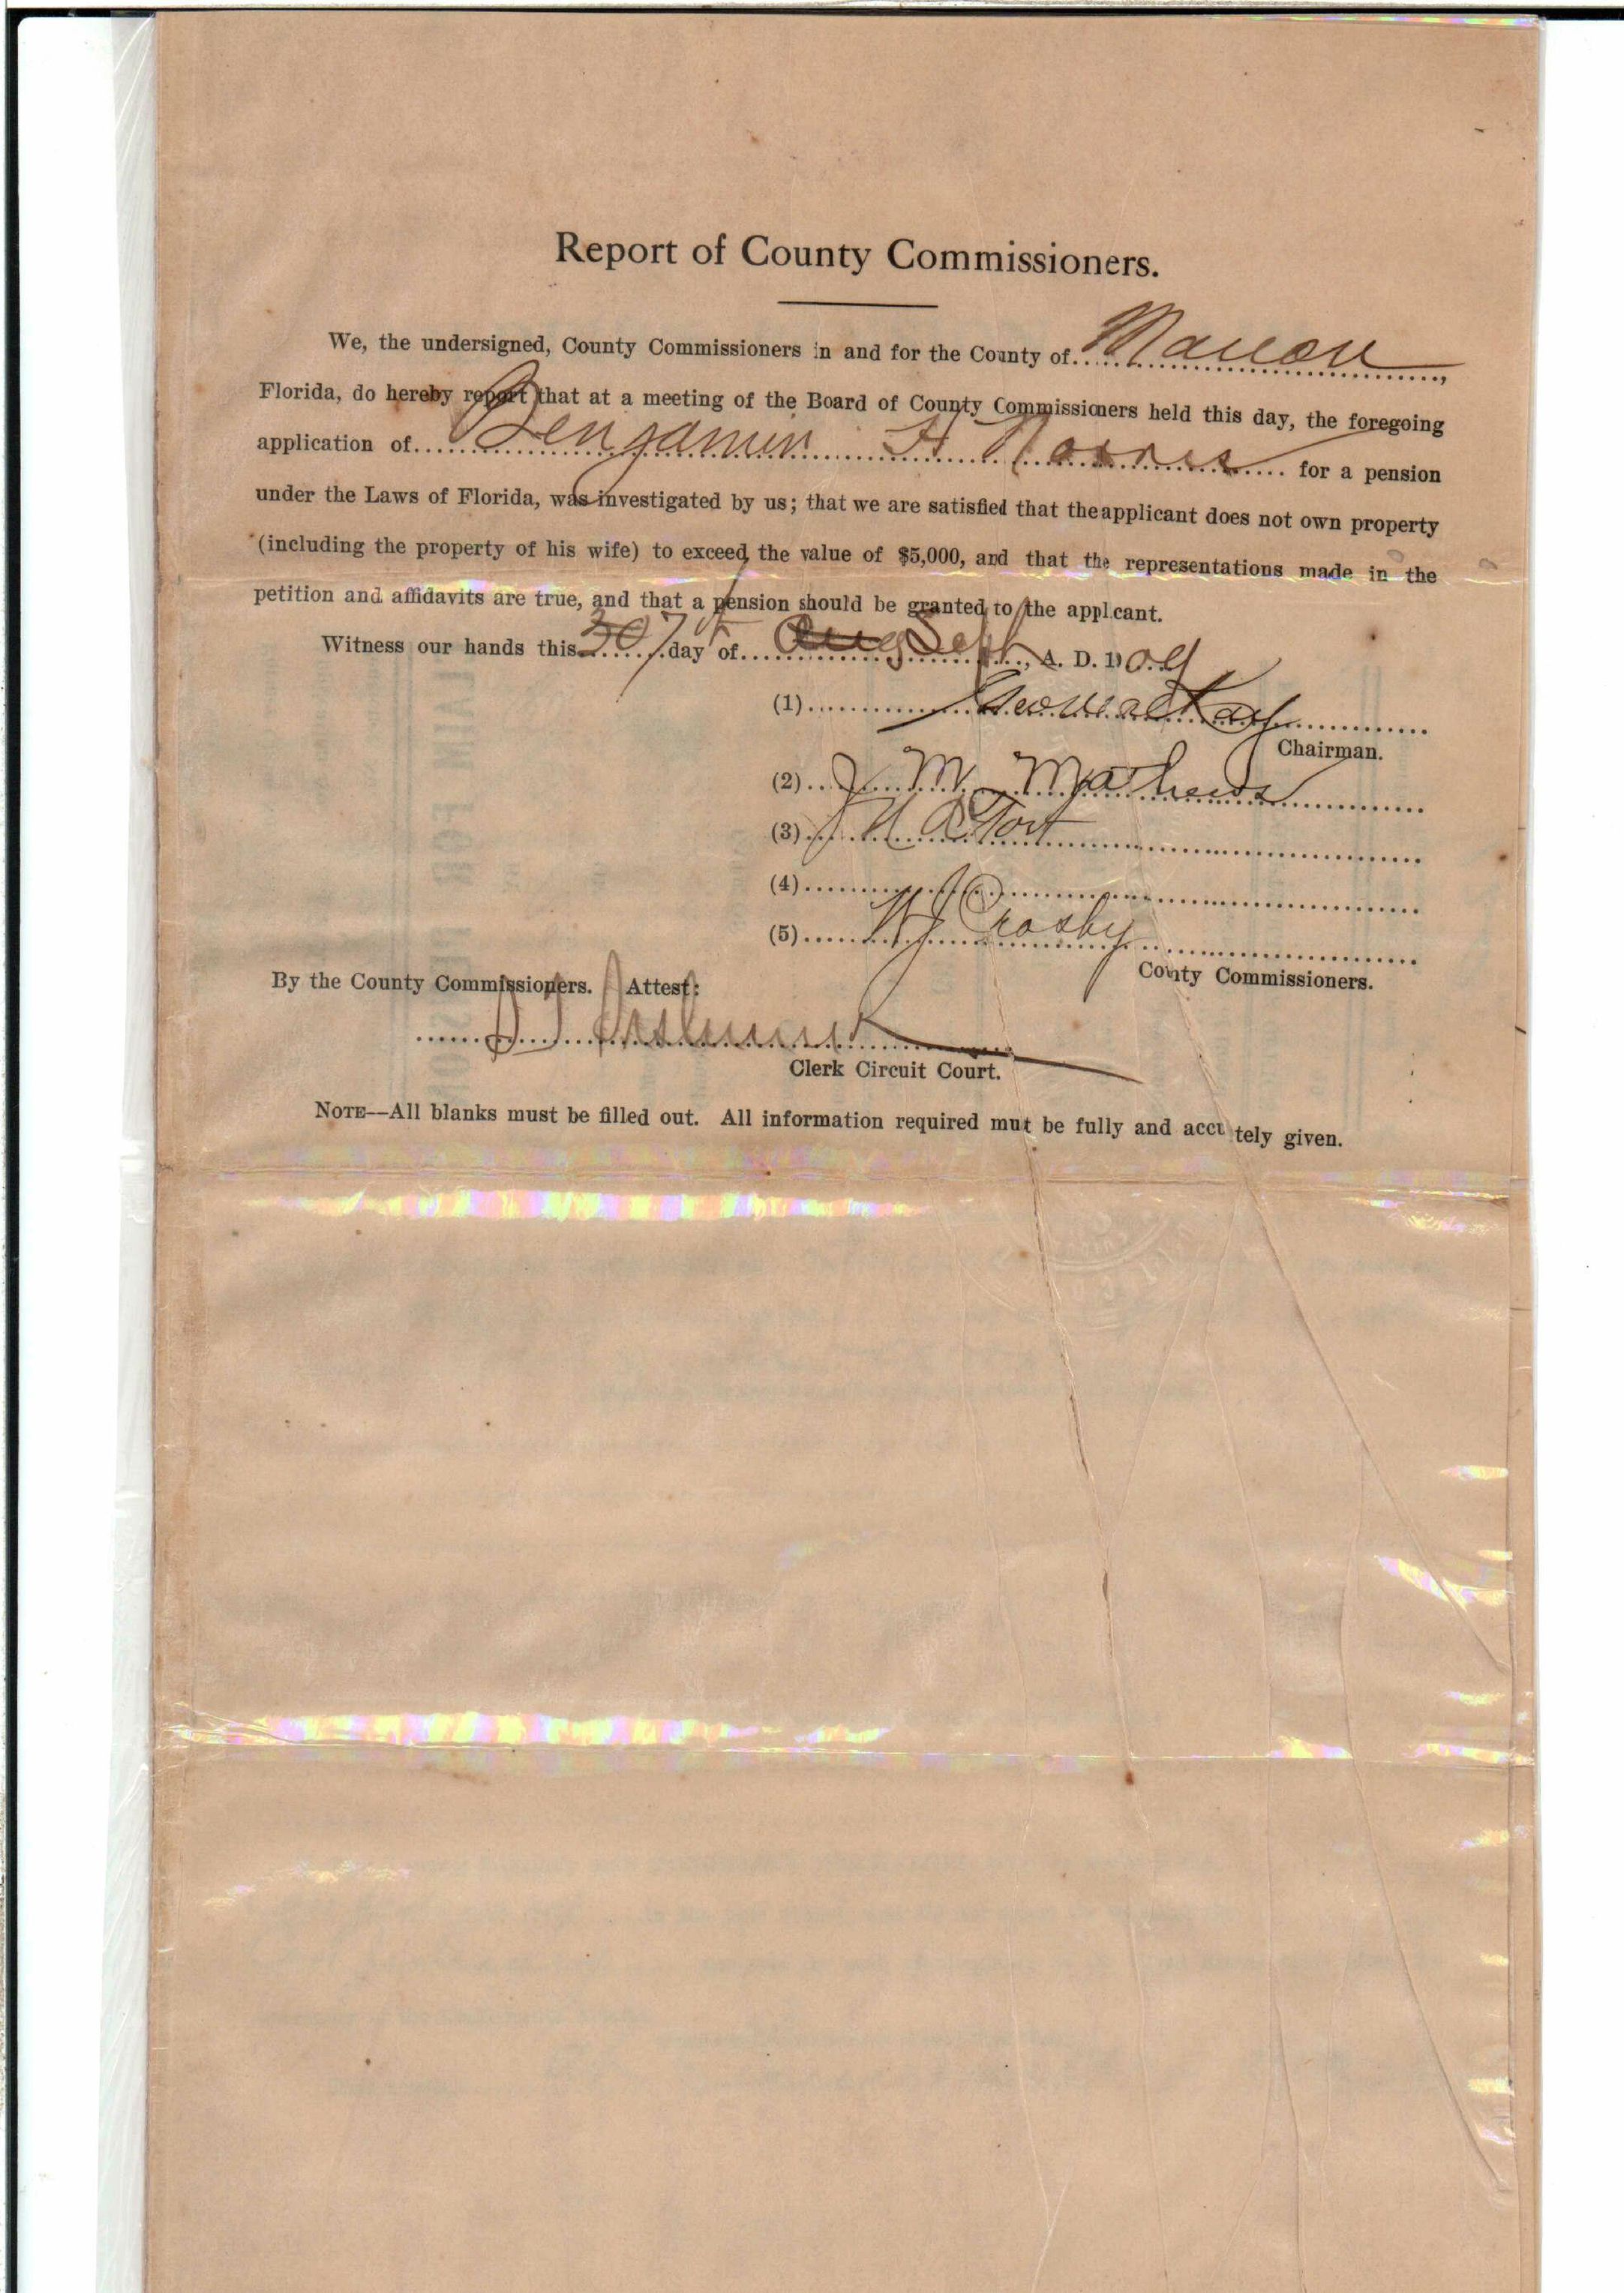 Report of County Commissioners.
We, the undersigned, County Commissioners in and for the County of Marion,
Florida, do hereby report that at a meeting of the Board of County Commissioners held this day, the foregoing
application of Benjamin H Norris for a pension
under the Laws of Florida, was investigated by us; that we are satisfied that the applicant does not own property
(including the property of his wife) to exceed the value of $5,000, and that the representations made in the
petition and affidavits are true, and that a pension should be granted to the applicant.
Witness our hands this 30 7th day of Aug Sept, A. D. 1909
(1)
Chairman.
(2) J M Mathews
(3)
(4)
(5) W J Crosby
County Commissioners.
By the County Commissioners. Attest:
Clerk Circuit Court.
NOTE—All blanks must be filled out. All information required mut be fully and accu tely given.